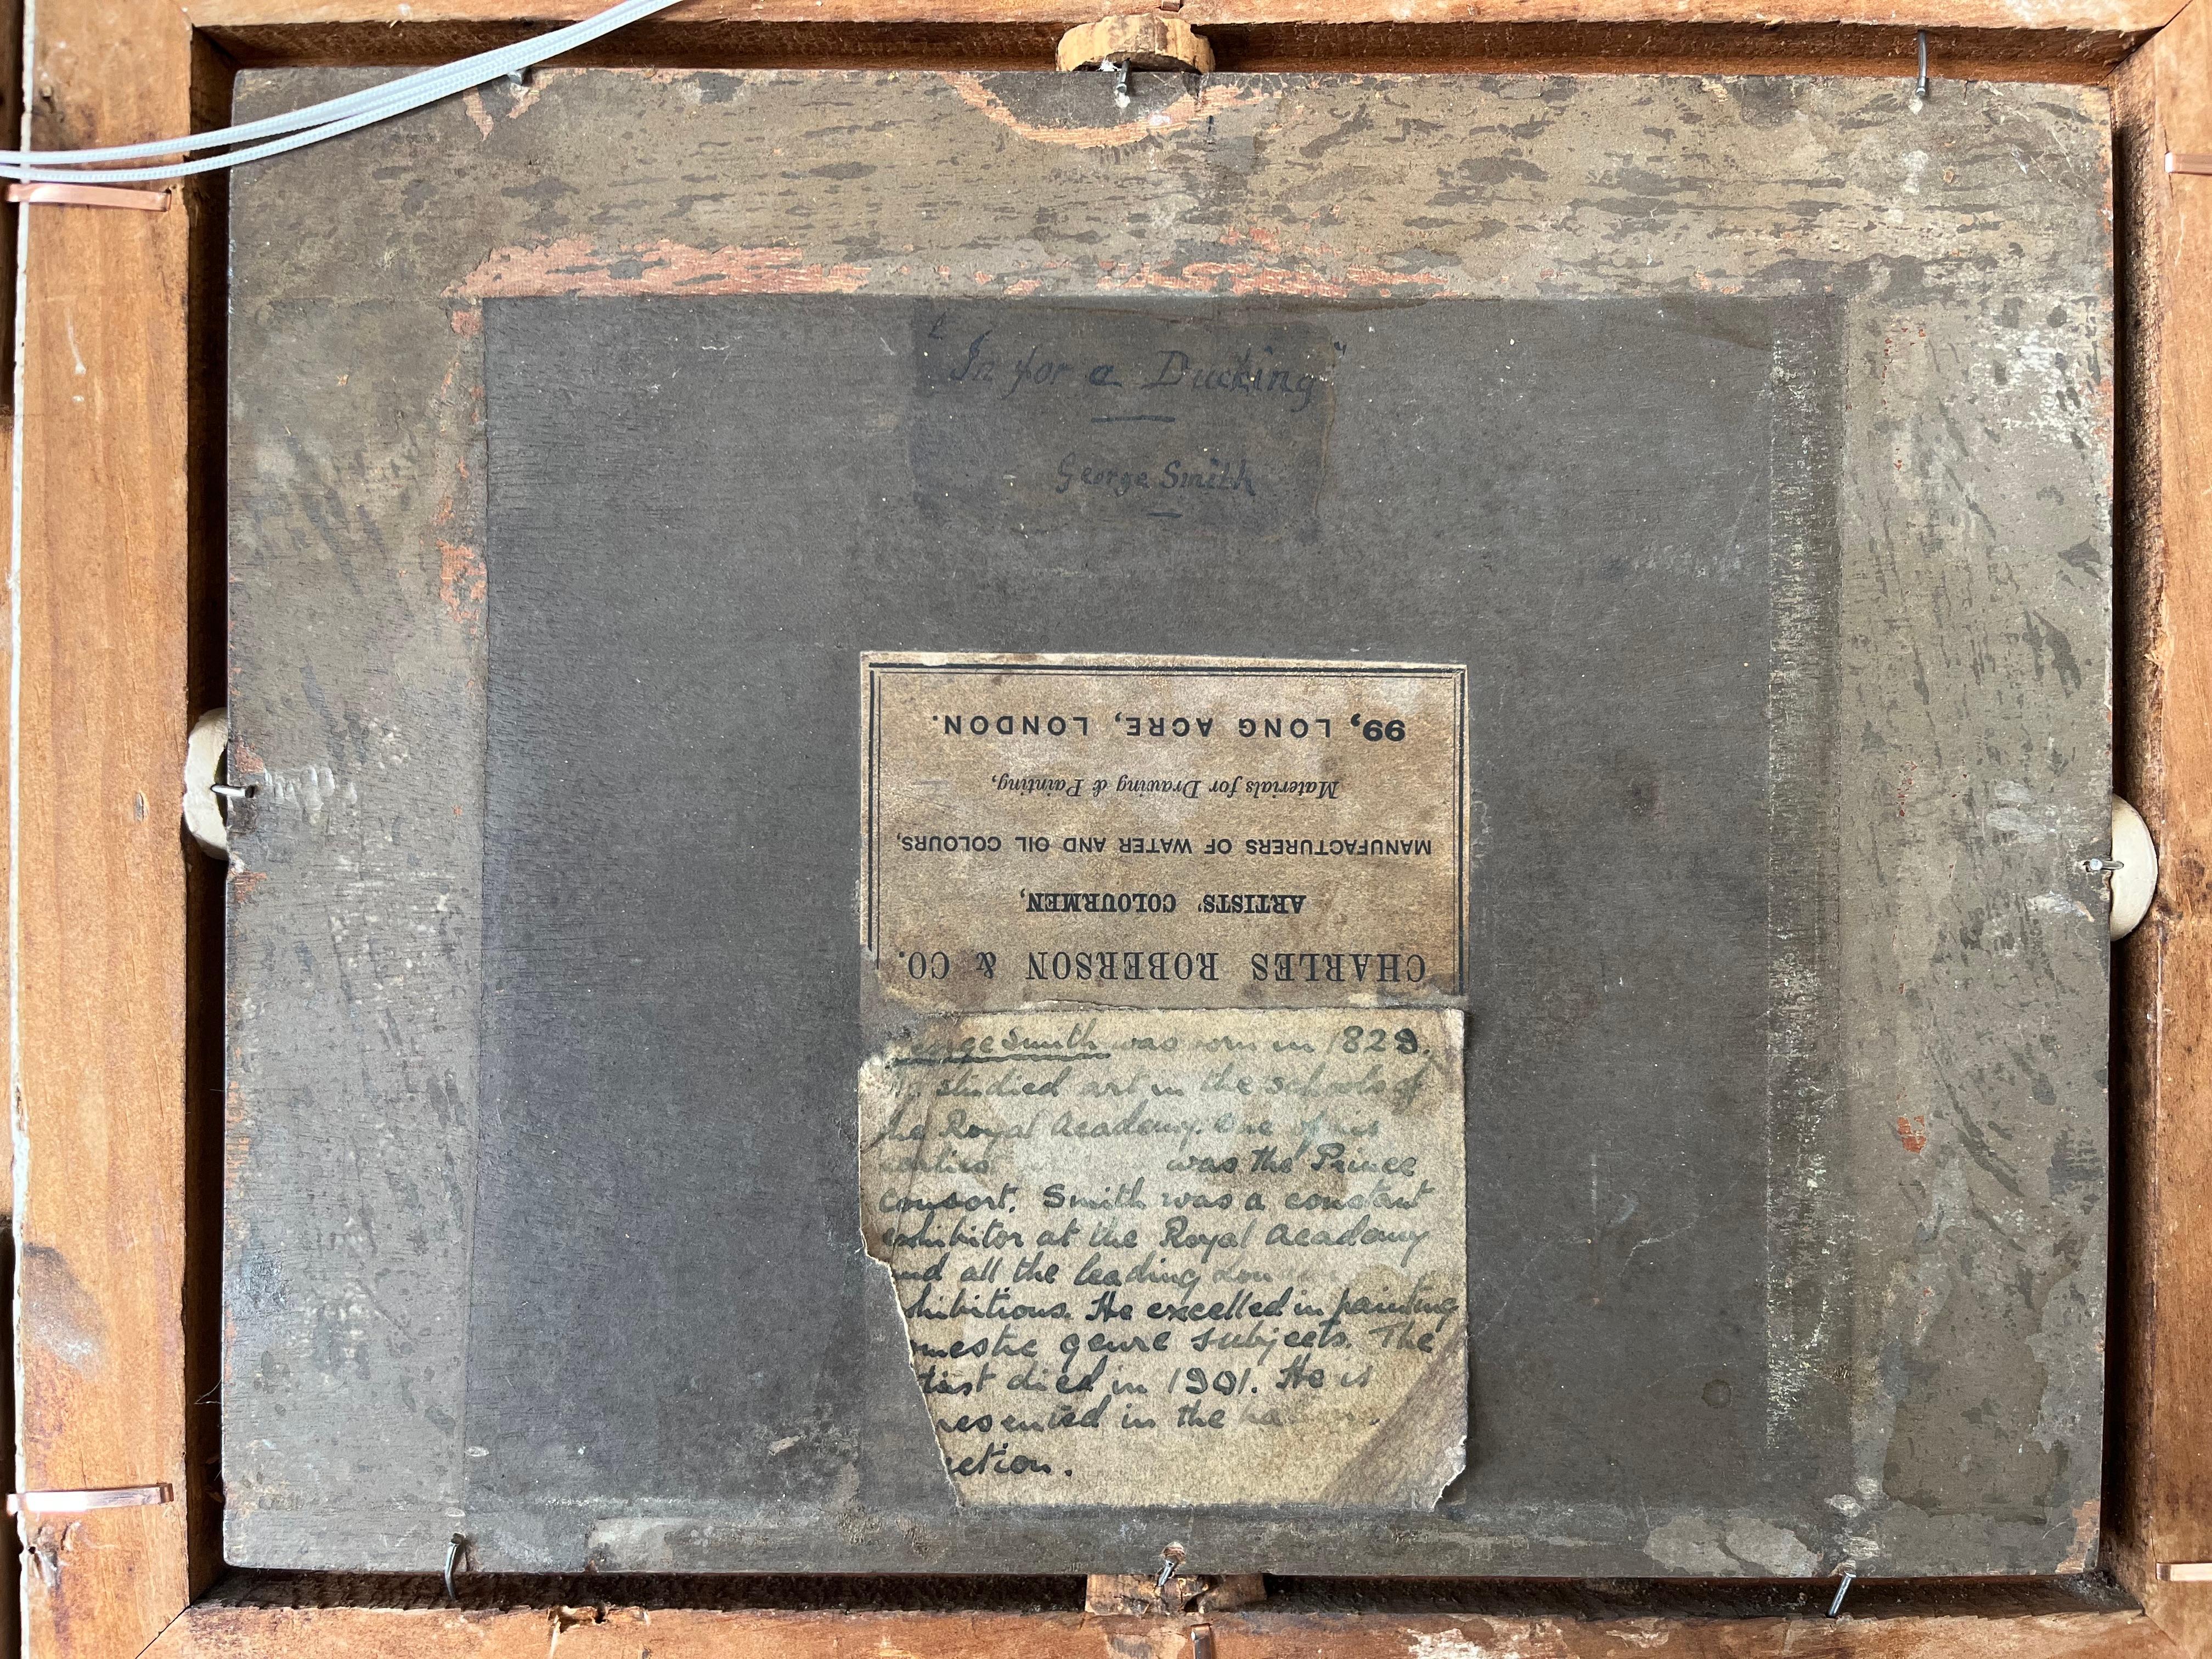 "In for a Ducking"
George Smith
CHARLES ROBERSON & CO.
ARTISTS' COLOURMEN,
MANUFACTURERS OF WATER AND OIL COLOURS,
Materials for Drawing & Painting,
99, LONG ACRE, LONDON.
George Smith was born in 1829.
studied art in the schools of
the Royal Academy. One of his
earliest was the Prince
Consort. Smith was a constant
exhibitor at the Royal Academy
and all the leading
hibitions. He excelled in painting
mestic genre subjects. The
tist died in 1901. He is
resented in the
ection.